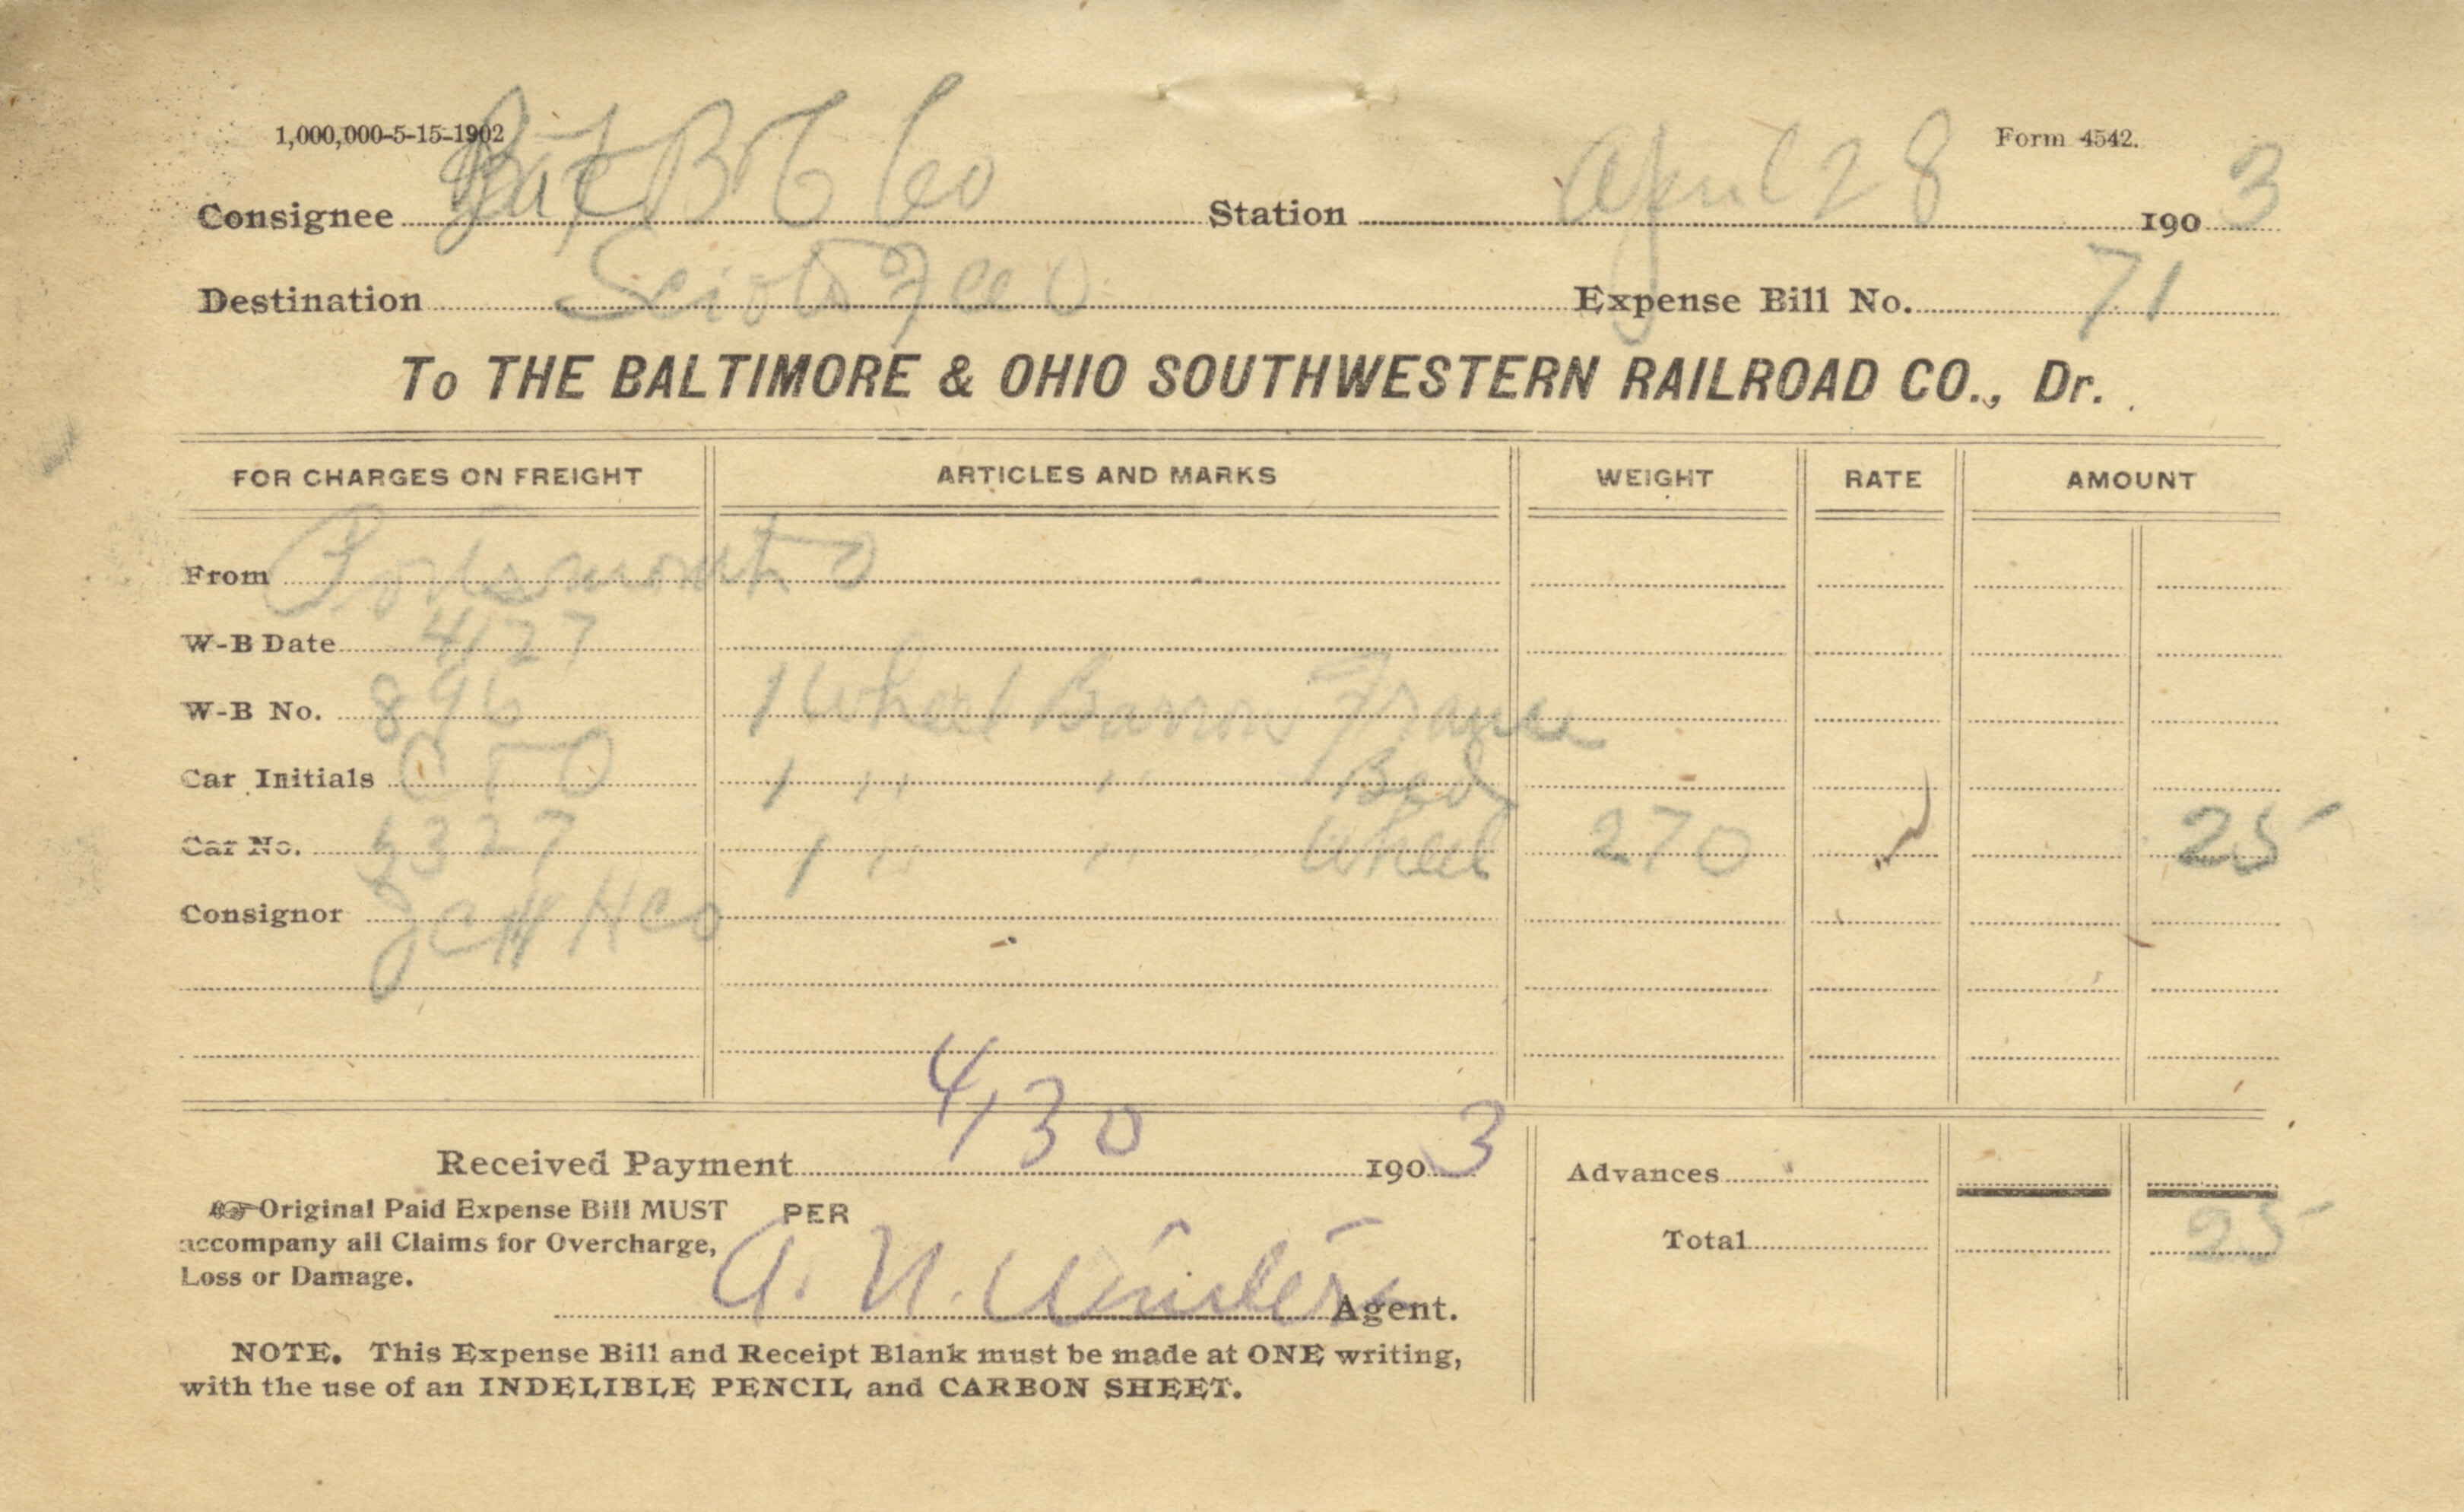 1,000,000-5-15-1902
Form 4542.
Consignee B Co Station April 28 1903
Destination Scioto Fce O Expense Bill No. 71
To THE BALTIMORE & OHIO SOUTHWESTERN RAILROAD CO., Dr.
FOR CHARGES ON FREIGHT ARTICLES AND MARKS WEIGHT RATE AMOUNT
From Portsmouth O
W-B Date 4/27
W-B No. 896 1 Wheel Barrow Frame
Car Initials 1 " " Bed
Car No. 5327 1 " " Wheel 270 25
Consignor
Received Payment 4/30 1903 Advances
☞Original Paid Expense Bill MUST PER
accompany all Claims for Overcharge, Total 25
Loss or Damage.
A. N. Winters Agent.
NOTE. This Expense Bill and Receipt Blank must be made at ONE writing,
with the use of an INDELIBLE PENCIL and CARBON SHEET.